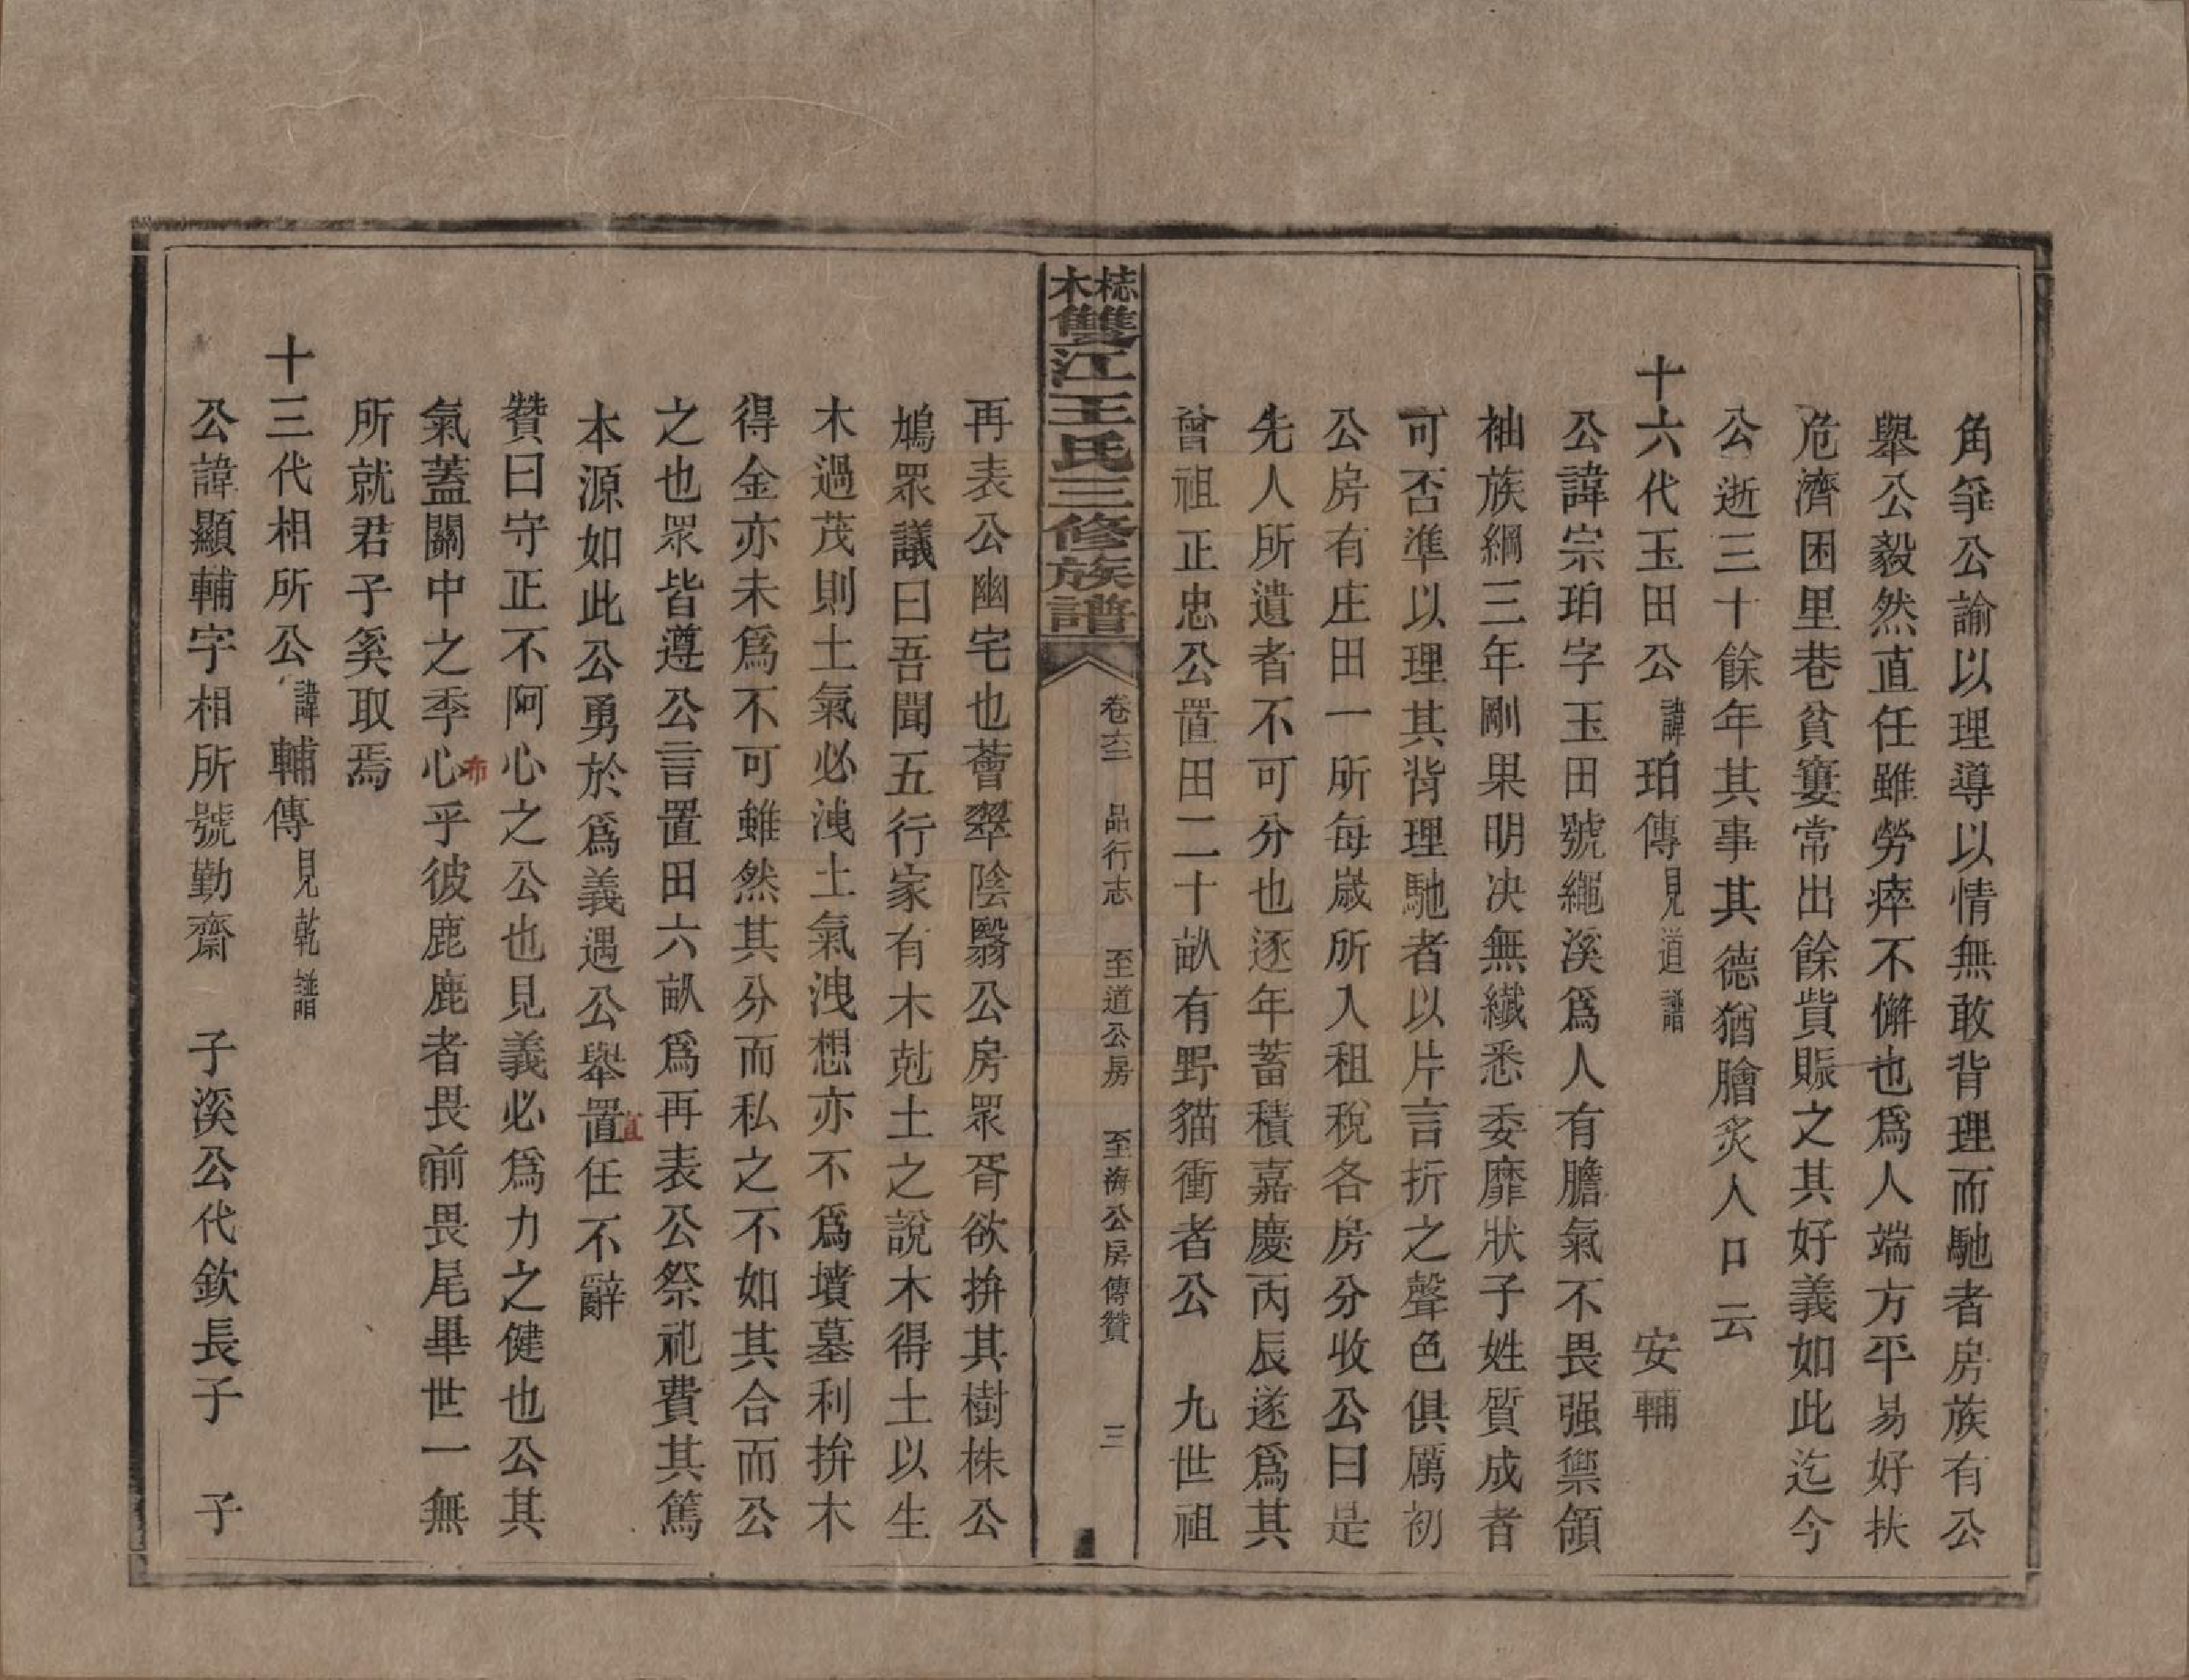 角筆公諭以理導以情無敢背理而馳者房族有公
舉公毅然直任雖勞瘁不懈也爲人端方平易好扶
危濟困里巷貧窶常出餘貲賑之其好義如此迄今
公逝三十餘年其事其德猶膾炙人口云
十六代玉田公諱珀傳見道譜 安輔
公諱宗珀字玉田號繩溪爲人有膽氣不畏强禦領
袖族綱三年剛果明决無纎悉委靡狀子姓質成者
可否準以理其背理馳者以片言折之聲色俱厲初
公房有庄田一所每歲所入租稅各房分收公曰是
先人所遺者不可分也逐年蓄積嘉慶丙辰遂爲其
曾祖正忠公置田二十畝有野貓衝者公 九世祖
梽木雙江王氏三修族譜
卷六二 品行志 至道公房 至海公房傳贊 三
再表公幽宅也薈翠陰翳公房眾胥欲拚其樹株公
鳩眾議曰吾聞五行家有木尅土之說木得土以生
木過茂則土氣必洩土氣洩想亦不爲墳墓利拚木
得金亦未爲不可雖然其分而私之不如其合而公
之也眾皆遵公言置田六畝爲再表公祭祀費其篤
本源如此公勇於爲義遇公舉置任不辭
直
贊曰守正不阿心之公也見義必爲力之健也公其
氣蓋關中之季心乎彼鹿鹿者畏前畏尾畢世一無
布
所就君子奚取焉
十三代相所公諱輔傳見乾譜
公諱顯輔字相所號勤齋 子溪公代欽長子 子